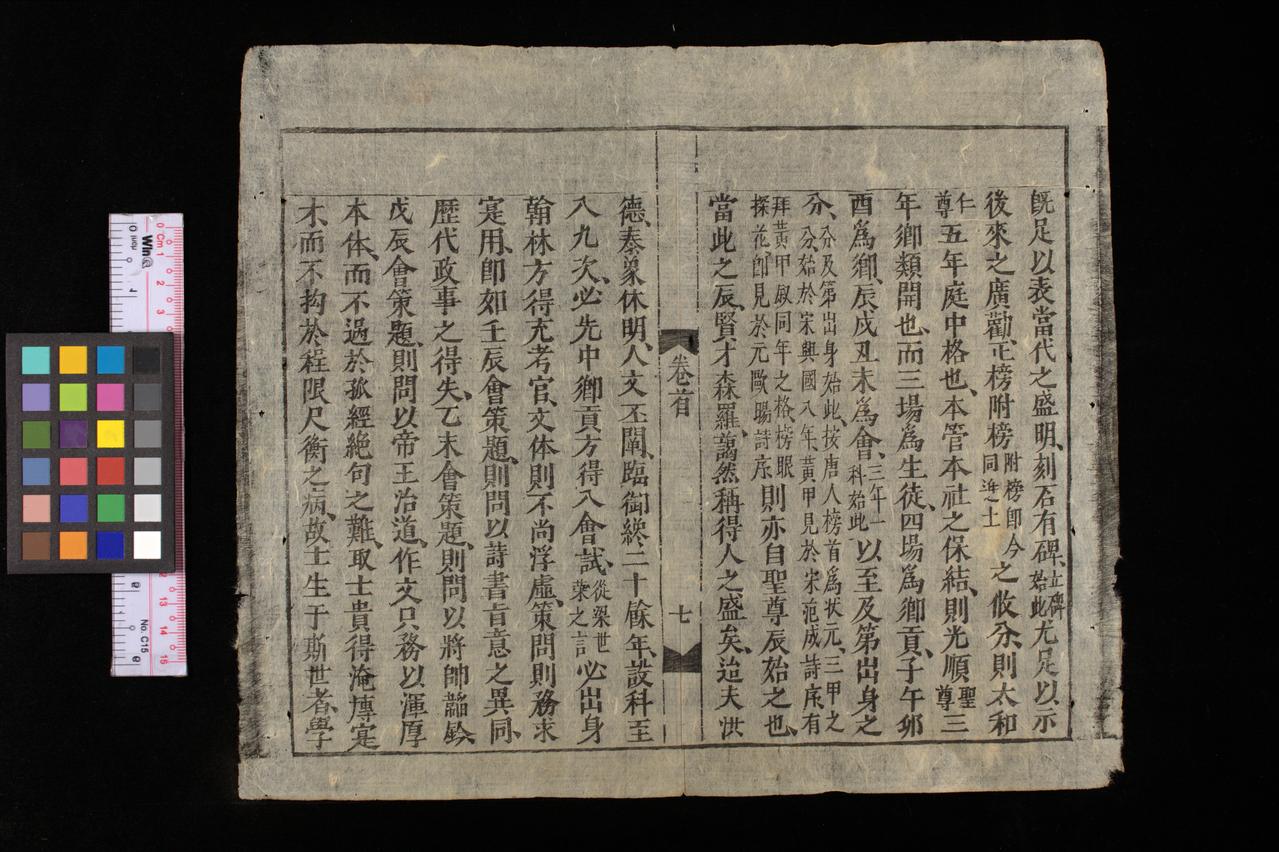 旣足以表當代之盛明、刻石有碑、立碑始此尤足以示
後來之廣勸、正榜附榜附榜卽今同進士之攸分、則太和
仁尊五年庭中格也、本管本社之保結、則光順聖尊三
年鄉類開也、而三場爲生徒、四場爲鄉貢、子午卯
酉爲鄉、辰戌丑未爲會、三年一科始此以至及第出身之
分、分及第出身始此、按唐人榜首爲状元、三甲之
分、分始於宋興國八年、黃甲見於宋范成詩序、有
拜黃甲敘同年之格、榜眼
探花卽見於元歐陽詩序則亦自聖尊辰始之也、
當此之辰、賢才森羅、藹然稱得人之盛矣、迨夫洪
卷首
七
德、泰象休明、人文丕闡、臨御終二十餘年、設科至
八九次、必先中鄉貢方得入會試、從梁世棐之言必出身
翰林方得充考官、文体則不尚浮虛、策問則務求
寔用、卽如壬辰會策題、則問以詩書旨意之異同、
歷代政事之得失、乙未會策題、則問以將帥韜鈐、
戊辰會策題、則問以帝王治道、作文只務以渾厚
本体、而不過於孤經絕句之難、取士貴得淹博寔
才、而不拘於程限尺衡之病、故士生于斯世者、學